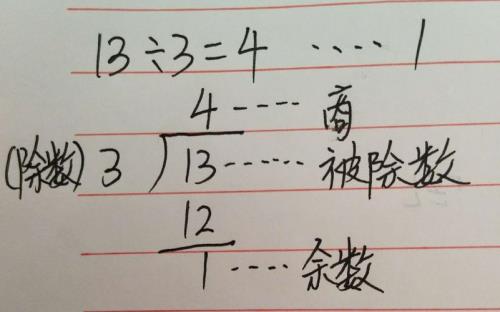 13÷3=4 ···· 1
4 ---- 商
(除数) 3 ) 13 ------ 被除数
12
1 ---- 余数